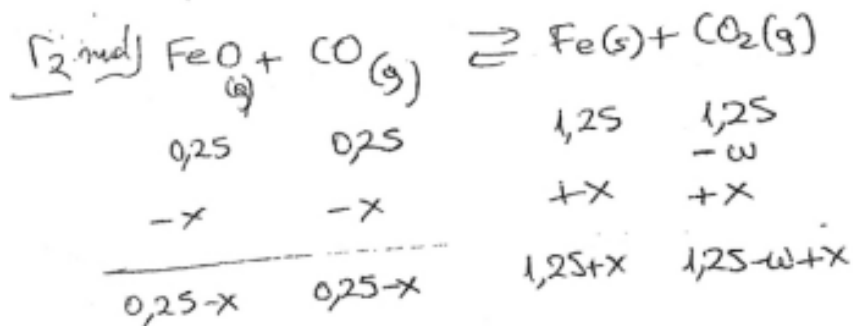 Γ2 mol) FeO(s) + CO(g) ⇌ Fe(s) + CO2(g)
0,25 0,25 1,25 1,25
- ω
-x -x +x +x
0,25-x 0,25-x 1,25+x 1,25-ω+x